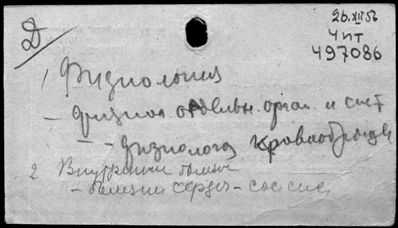 26.XII.56
Д
4 пт
497086
1 Физиология
- физиол. отдельн. орган. и сист
- - физиология кровообращ
2 Внутренние болезн
- болезни сердц - сос сис